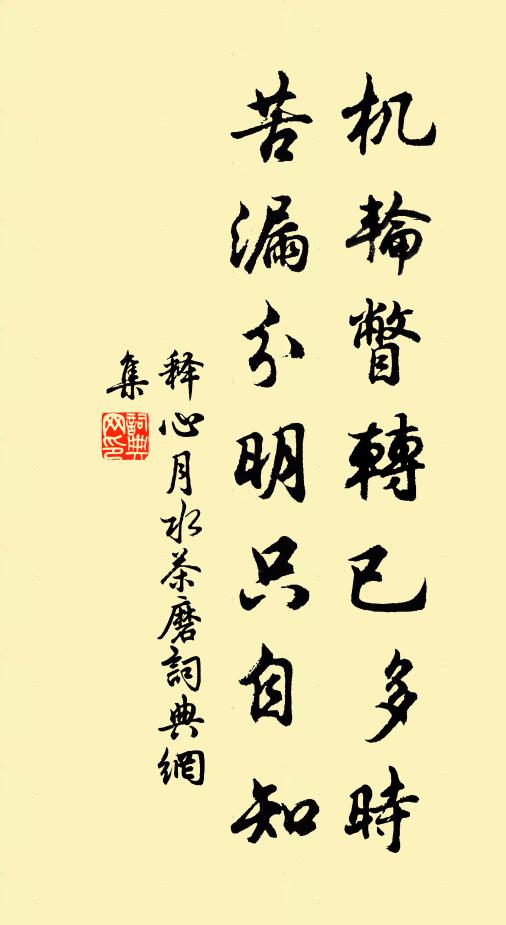 机輪瞥轉已多時
苦漏分明只自知
释心月水茶磨詞典網
集
詞典
网印